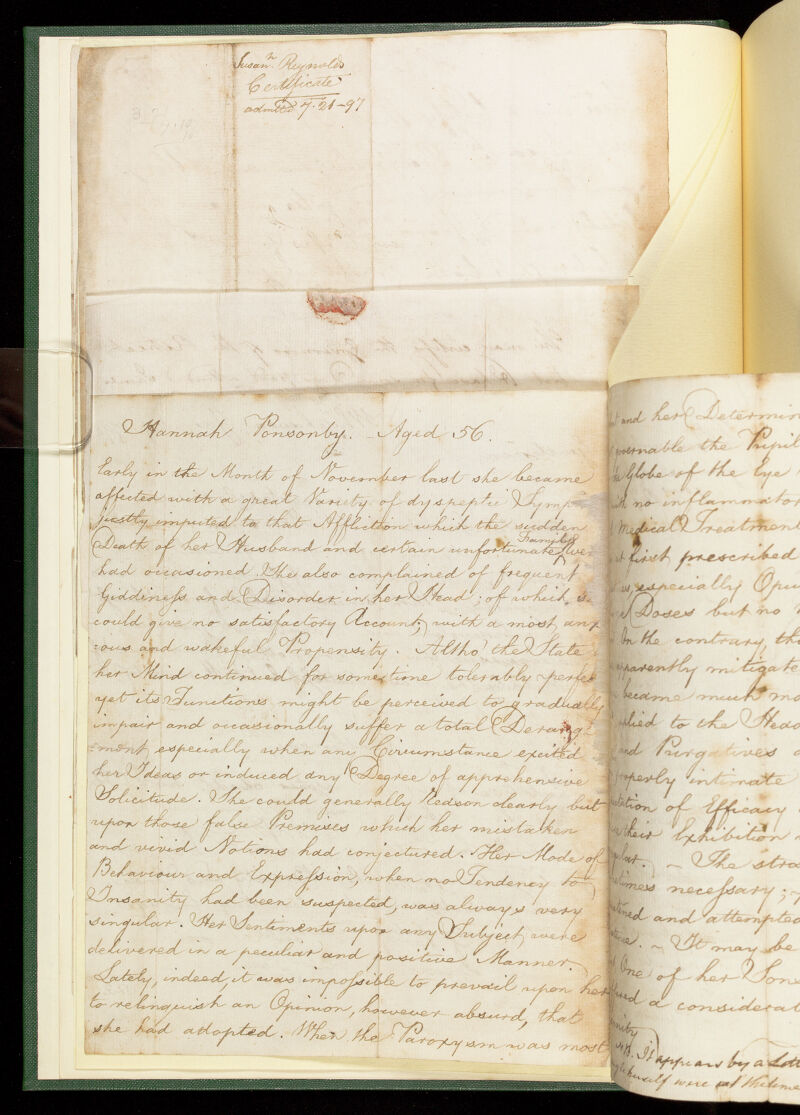 Susanh. Reynolds
Certificate
admitted 7.21-97
Hannah Ponsonby. Aged 56.
Early in the Month of November last she became
affected with a great Variety of dyspeptic Symp
justly imputed to that Affliction which the sudden
Family
Death of her Husband and certain unfortunate
had occasioned. She also complained of frequent
Giddiness and Disorder in her Head; of which s
could give no satisfactory Account, with a most anx
ious and wakeful Propensity. Altho' the State
her Mind continued for sometime tolerably perfec
yet its Functions might be perceived to gradually
impair and occasionally suffer a total Derang
ement, especially when any Circumstance excited
her Ideas or induced any Degree of apprehensive
Solicitude. She could generally Reason clearly but
upon those false Premises which her mistaken
and vivid Notions had conjectured. Her Mode of
Behaviour and Expression, when no Tendency to
Insanity had been suspected, was always very
singular. Her Sentiments upon any Subject were
delivered in a peculiar and positive Manner.
Lately, indeed, it was impossible to prevail upon her
to relinquish an Opinion, however absurd, that
she had adopted. When the Paroxysm was most
and her Determin
governable the Pupil
the Globe of the Eye
no inflammator
Medical Treatment
first prescribed
especially Opiu
Doses but no
On the contrary, tho
apparently mitigate
became much mo
applied to the Head
and Purgatives
properly intimate
of Efficacy
their Exhibition
The stra
necessary;
and attempted
It may be
One of her Sons
a considerat
It appears by a Lett
himself were at the time